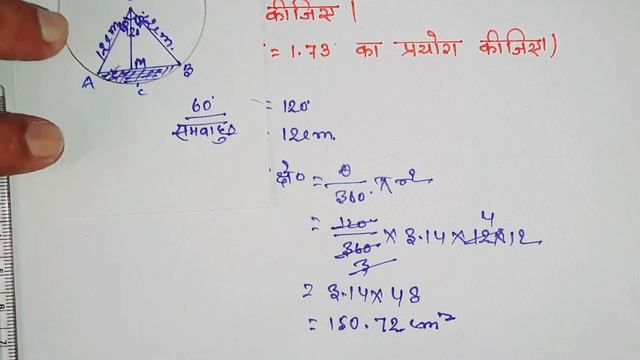 कीजिए।
= 1.73 का प्रयोग कीजिए।)
12cm 12cm.
A M B
C
60°
समबाहु Δ
= 120°
12cm.
क्षे० = θ/360 × πr²
= 120/360 × 3.14 × 12 × 12
3 4
= 3.14 × 48
= 150.72 cm²